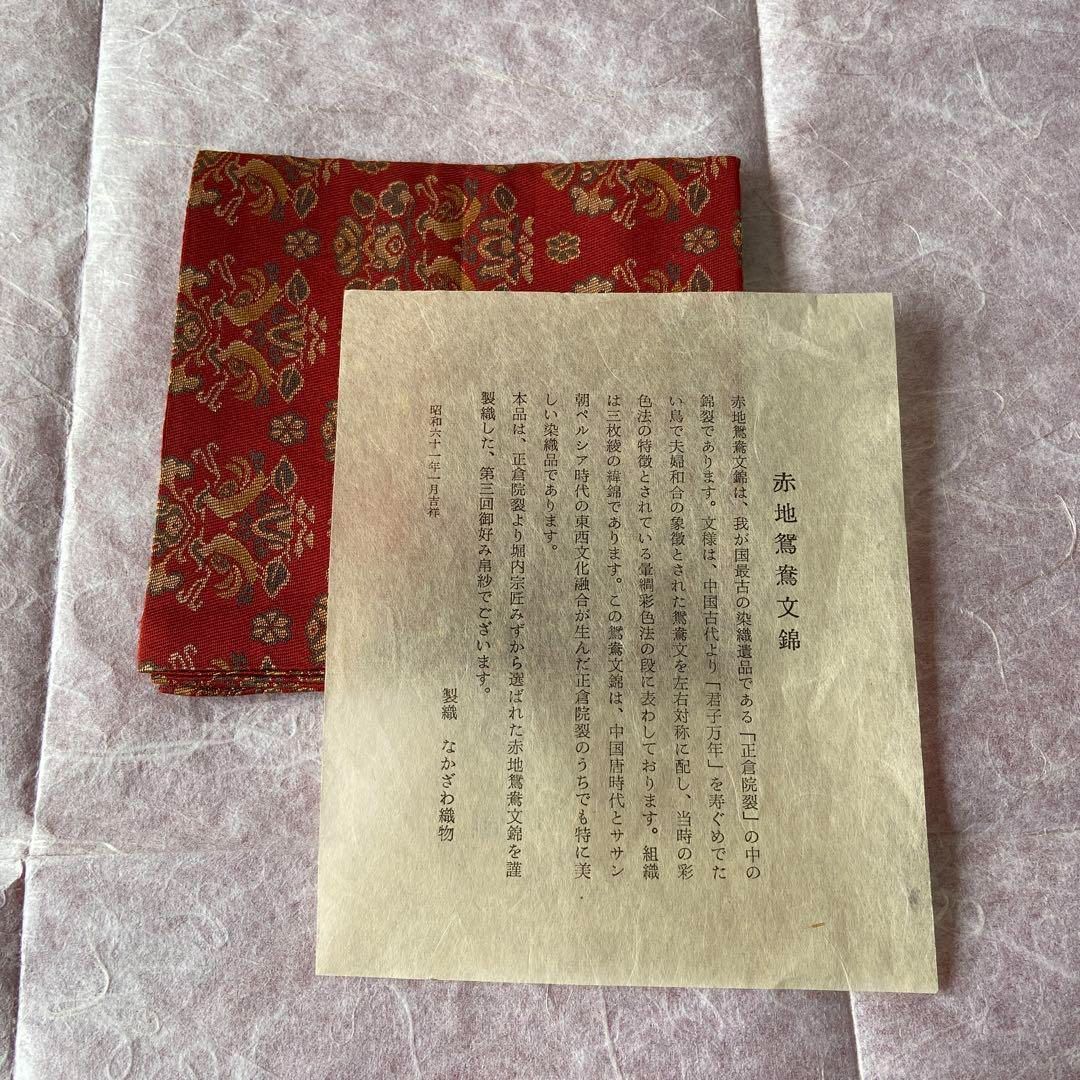 赤地鴛鴦文錦
赤地鴛鴦文錦は、我が国最古の染織遺品である「正倉院裂」の中の
錦裂であります。文様は、中国古代より「君子万年」を寿ぐめでた
い鳥で夫婦和合の象徴とされた鴛鴦文を左右対称に配し、当時の彩
色法の特徴とされている暈繝彩色法の段に表わしております。組織
は三枚綾の緯錦であります。この鴛鴦文錦は、中国唐時代とササン
朝ペルシア時代の東西文化融合が生んだ正倉院裂のうちでも特に美
しい染織品であります。
本品は、正倉院裂より堀内宗匠みずから選ばれた赤地鴛鴦文錦を謹
製織した、第三回御好み帛紗でございます。
昭和六十一年一月吉祥
製織 なかざわ織物